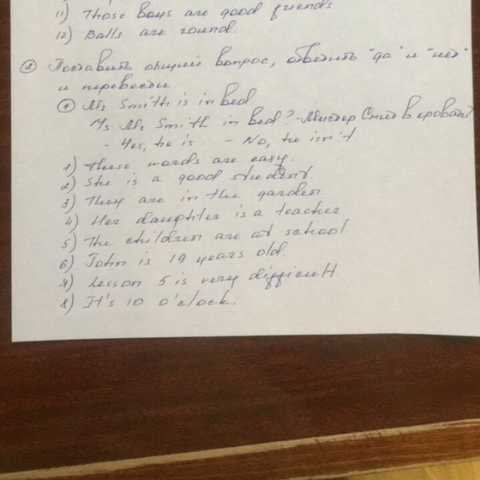 11) Those boys are good friends.
12) Balls are round.
② Поставить общий вопрос, ответить "да" и "нет"
и перевести.
Mr Smith is in bed
Is Mr Smith in bed? - Мистер Смит в кровати
- Yes, he is - No, he isn't
1) These words are easy.
2) She is a good student
3) They are in the garden
4) Her daughter is a teacher
5) The children are at school
6) John is 19 years old.
7) Lesson 5 is very difficult.
8) It's 10 o'clock.